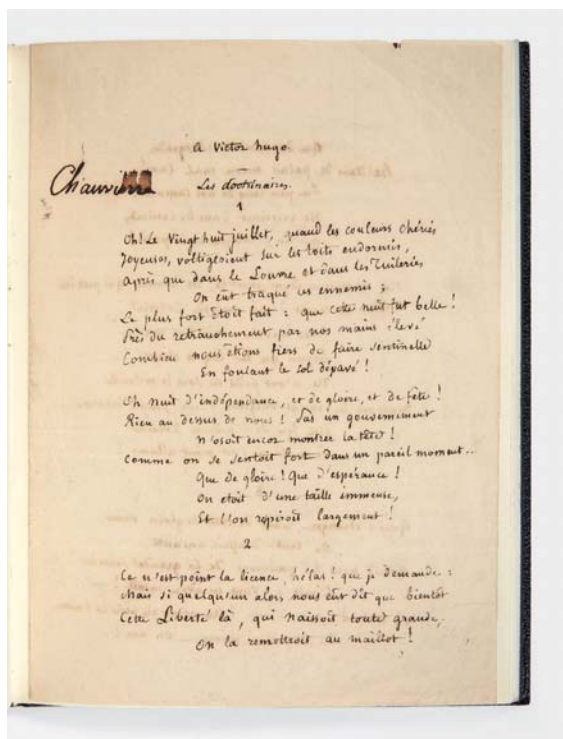 A Victor hugo.
Chauvierre
Les doctrinaires.
1
Oh! Le Vingt huit juillet, quand les couleurs chéries
Joyeuses, voltigeoient sur les toits endormis,
Après que dans le Louvre et dans les Tuileries
On eût traqué les ennemis ;
Le plus fort étoit fait : que cette nuit fut belle !
Près du retranchement par nos mains élevé
Combien nous étions fiers de faire sentinelle
En foulant le sol dépavé !
Oh nuit d'indépendance, et de gloire, et de fête !
Rien au dessus de nous ! Pas un gouvernement
N'osoit encor montrer la tête !
Comme on se sentoit fort dans un pareil moment..
Que de gloire ! Que d'espérance !
On étoit d'une taille immense,
Et l'on respiroit largement !
2
Ce n'est point la licence, hélas ! que je demande :
Mais si quelqu'un alors nous eût dit que bientôt
Cette Liberté là, qui naissoit toute grande,
On la remettroit au maillot !